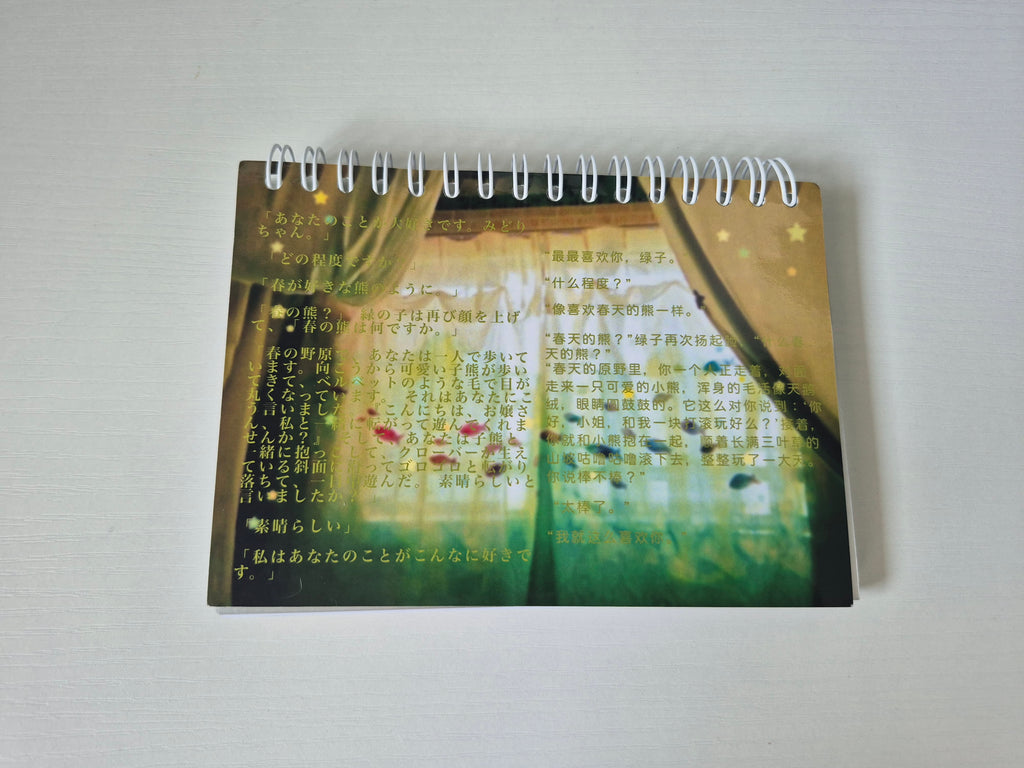 「あなたのことが大好きです。みどり
ちゃん。」
「どの程度ですか。」
「春が好きな熊のように。」
「春の熊？」 緑の子は再び顔を上げ
て、「春の熊は何ですか。」
「春の野原で、あなたは一人で歩いて
います。向こうから可愛い子熊が歩い
てきて、ベルベットのような毛で目が
丸くなっています。それはあなたにこ
う言いました。『こんにちは、お嬢さ
ん、私と一緒に転がって遊んでくれま
せんか？』 そして、あなたは子熊と
一緒に抱っこして、クローバーが生え
ている斜面に沿ってゴロゴロと転がり
落ちて、一日遊んだ。 素晴らしいと
言いましたか？」
「素晴らしい」
「私はあなたのことがこんなに好きで
す。」
“最最喜欢你，绿子。
“什么程度？”
“像喜欢春天的熊一样。
“春天的熊？”绿子再次扬起 “什么春
天的熊？”
“春天的原野里，你一个人正走着，对面
走来一只可爱的小熊，浑身的毛活像天鹅
绒，眼睛圆鼓鼓的。它这么对你说到：‘你
好，小姐，和我一块打滚玩好么？’接着，
你就和小熊抱在一起，顺着长满三叶草的
山坡咕噜咕噜滚下去，整整玩了一大天。
你说棒不棒？”
“太棒了。”
“我就这么喜欢你。”